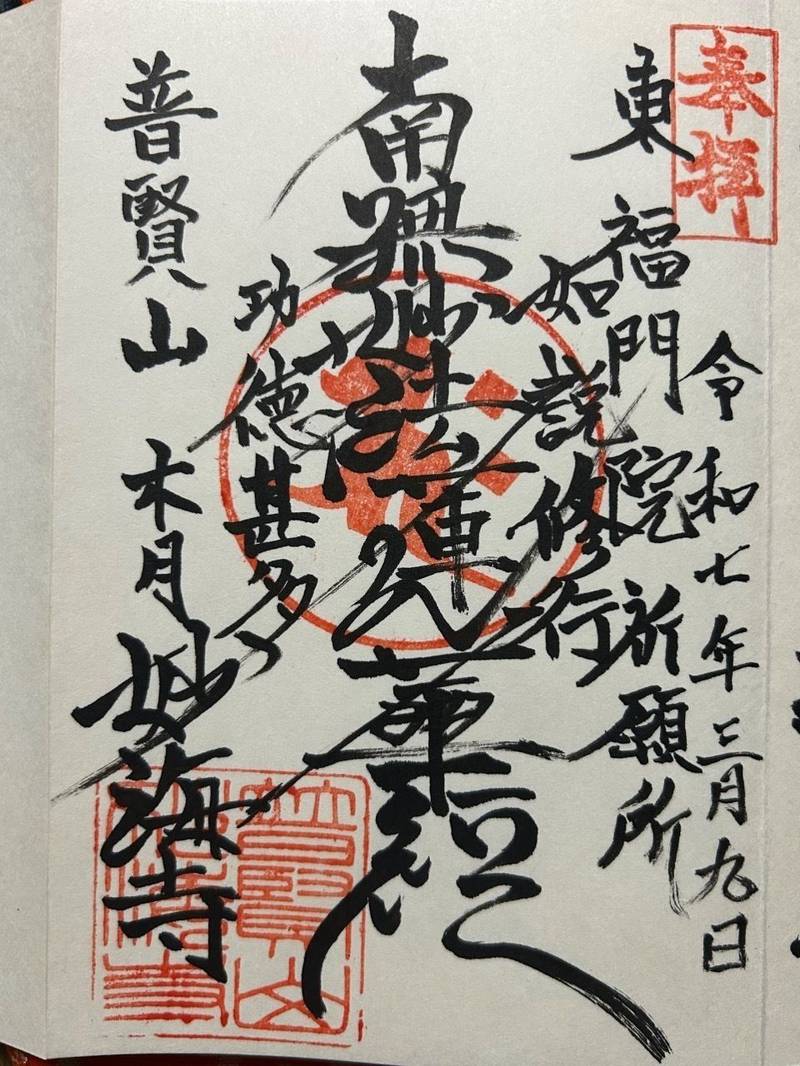 奉拝
令和七年三月九日
東福門院祈願所
如説修行
南無妙法蓮華経
功徳甚多
普賢山
木月 妙海寺
普賢山
妙海寺